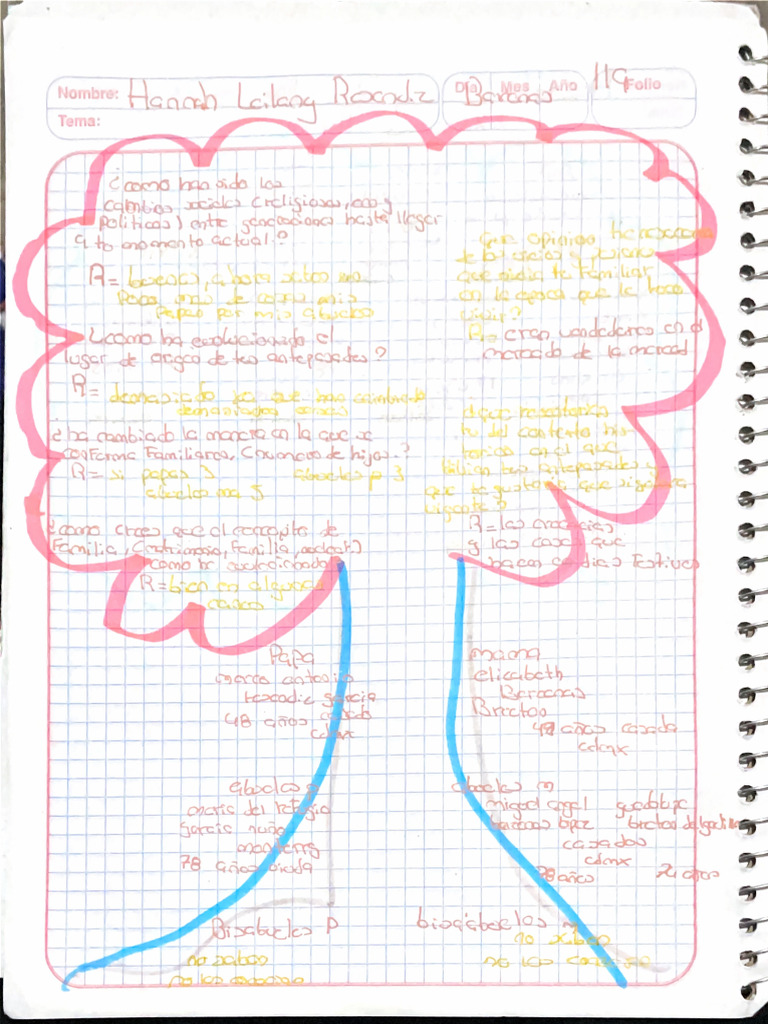 Nombre: Hannah Leilany Roxandiz Barcenas 119
Día Mes Año Folio
Tema:
¿como han sido los
cambios sociales (religiosos, eco y
politicos) entre generaciones hasta llegar
a tu momento actual?
R= buenos, ahora
Papa mas de como mis
Papas por mis abuelos
¿como ha evolucionado el
lugar de origen de tus antepasados?
R= demasiado ya que han
demasiadas cosas
¿ha cambiado la manera en la que se
conforma Familiares, (numero de hijos.?
R= si papas 3 abuelos p 3
abuelos ma 5
¿como crees que el concepto de
Familia, (matrimonio, familia, nuclear)
como ha evolucionado
R= bien en algunos
casos
que opinion
que vivia tu Familiar
en la epoca que le toco
vivir?
R= eran vendedores en el
mercado de la merced
¿que
tu del contexto his-
torico en el que
vivian tus antepasados y
que te gustaria que siguiera
vigente?
R= las creencias
y las cosas que
hacen en dias Festivos
Papa
marco antonio
roxandiz garcia
48 años casado
cdmx
mama
elizabeth
Barcenas
Bretos
años casada
cdmx
abuelos p
maria del refugio
garcia nuño
monterrey
78 años viuda
abuelos m
miguel angel guadalupe
barcenas lopez bretos
casados
cdmx
78 años 74 años
Bisabuelos P
no saben
no los conocieron
bisabuelos m
no saben
no los